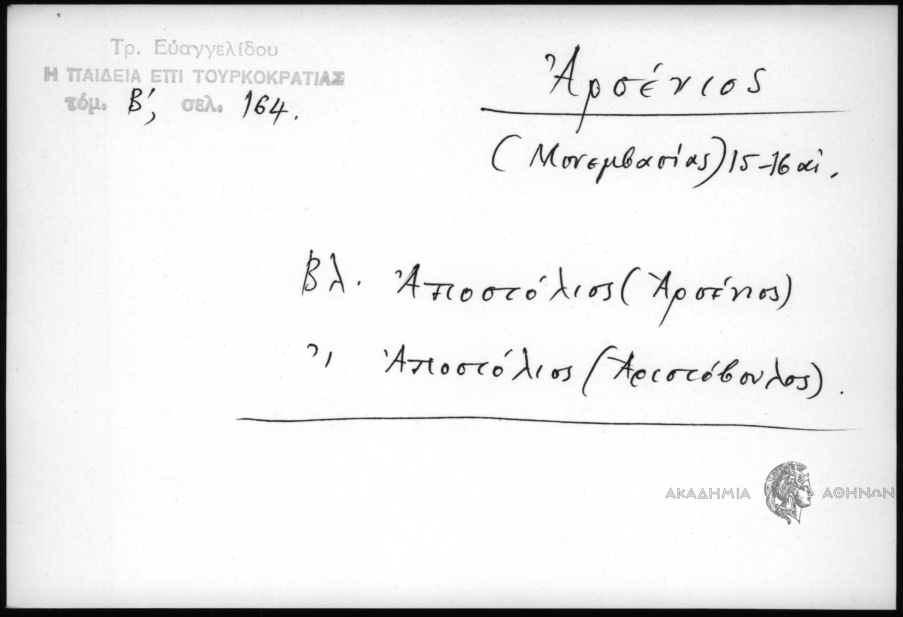 Τρ. Εὐαγγελίδου
Η ΠΑΙΔΕΙΑ ΕΠΙ ΤΟΥΡΚΟΚΡΑΤΙΑΣ
τόμ. Β', σελ. 164.
Ἀρσένιος
(Μονεμβασίας) 15-16 αἰ.
Βλ. Ἀποστόλιος (Ἀρσένιος)
" Ἀποστόλιος (Ἀριστόβουλος).
ΑΚΑΔΗΜΙΑ ΑΘΗΝΩΝ